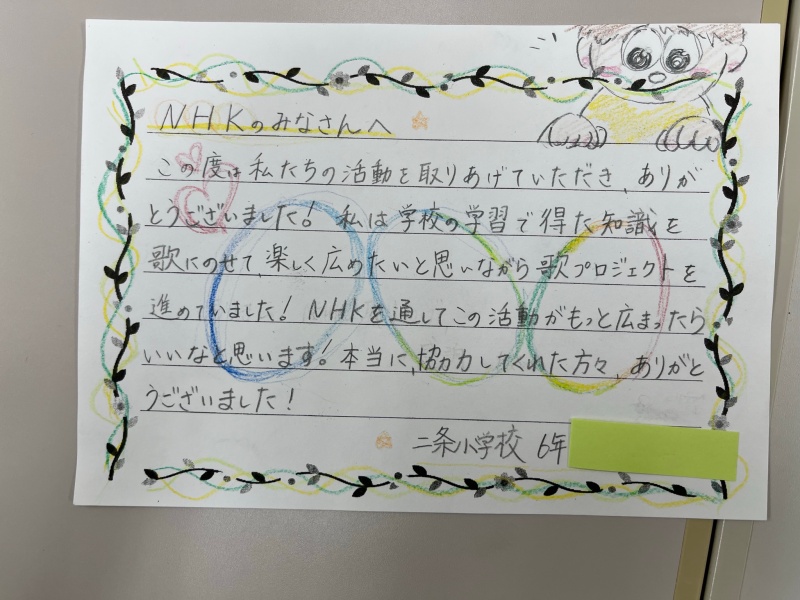 NHKのみなさんへ
この度は私たちの活動を取りあげていただき、ありが
とうございました！ 私は学校の学習で得た知識を
歌にのせて、楽しく広めたいと思いながら歌プロジェクトを
進めていました！ NHKを通してこの活動がもっと広まったら
いいなと思います！本当に、協力してくれた方々、ありがと
うございました！
二条小学校 6年